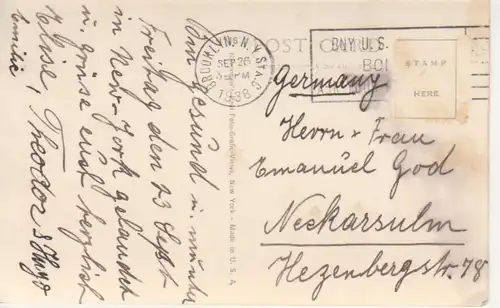 Bin gesund u. munter
Freitag den 23 Sept
in New-York gelandet
u. grüsse euch herzlich
Elise, Theodor &
Emilie
POST CARD
BROOKLYN, N.Y. STA. C
SEP 26
PM
1938
BUY U.S.
BO
STAMP
HERE
Foto-Grafic-Views, New York - Made in U. S. A.
Germany
Herrn + Frau
Emanuel God
Neckarsulm
Hezenbergstr. 78